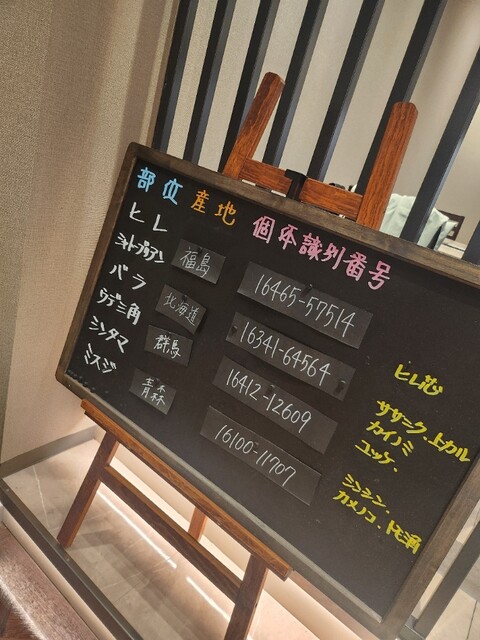 部位 産地 個体識別番号
ヒレ
シャトーブリアン
バラ
ウデ三角
シンタマ
ミスジ
福島
北海道
群馬
青森
16465-57514
16341-64564
16412-12609
16100-11707
ヒレ芯
ササミ、上カル
カイノミ
ユッケ、
シンシン、
カメノコ、トモ三角